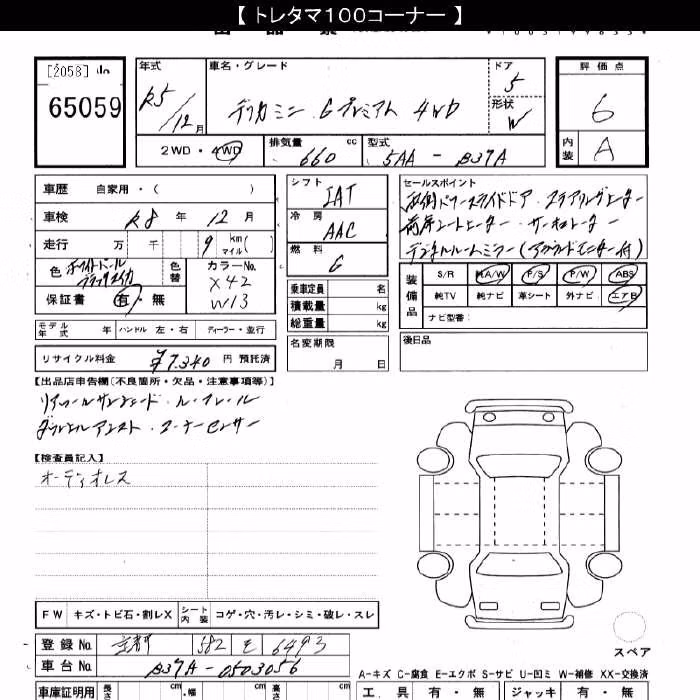 【 トレタマ100コーナー 】
[2058]
65059
年式 車名・グレード ドア 評価点
R5/12月 デリカミニ Gプレミアム 4WD 5 6
形状 W
2WD・4WD 排気量 660 cc 型式 5AA - B37A 内装 A
車歴 自家用・( )
車検 R8 年 12 月
走行 万 千 9 km (マイル)
色 色替 カラーNo. X42 W13
保証書 有・無
シフト IAT
冷房 AAC
燃料 G
乗車定員 名
積載量 kg
総重量 kg
セールスポイント
両側パワースライドドア・ステアリングヒーター
前席シートヒーター・サーキュレーター
デジタルルームミラー(アラウンドモニター付)
装備品 S/R (純)A/W P/S P/W ABS
純TV 純ナビ 革シート 外ナビ エアB
ナビ型番:
モデル年式 年 ハンドル 左・右 ディーラー・並行
名変期限 月 日
後日品
リサイクル料金 ¥7,340 円 預託済
【出品店申告欄(不良箇所・欠品・注意事項等)】
リアロールサンシェード・ルーフレール
ダウンヒルアシスト・コーナーセンサー
【検査員記入】
オーディオレス
FW キズ・トビ石・割レX シート内装 コゲ・穴・汚レ・シミ・破レ・スレ
スペア
登録No. 京都 582 モ 6493
車台No. B37A-0503056
A-キズ C-腐食 E-エクボ S-サビ U-凹ミ W-補修 XX-交換済
車庫証明用 長さ cm 幅 cm 高さ cm 工具 有・無 ジャッキ 有・無